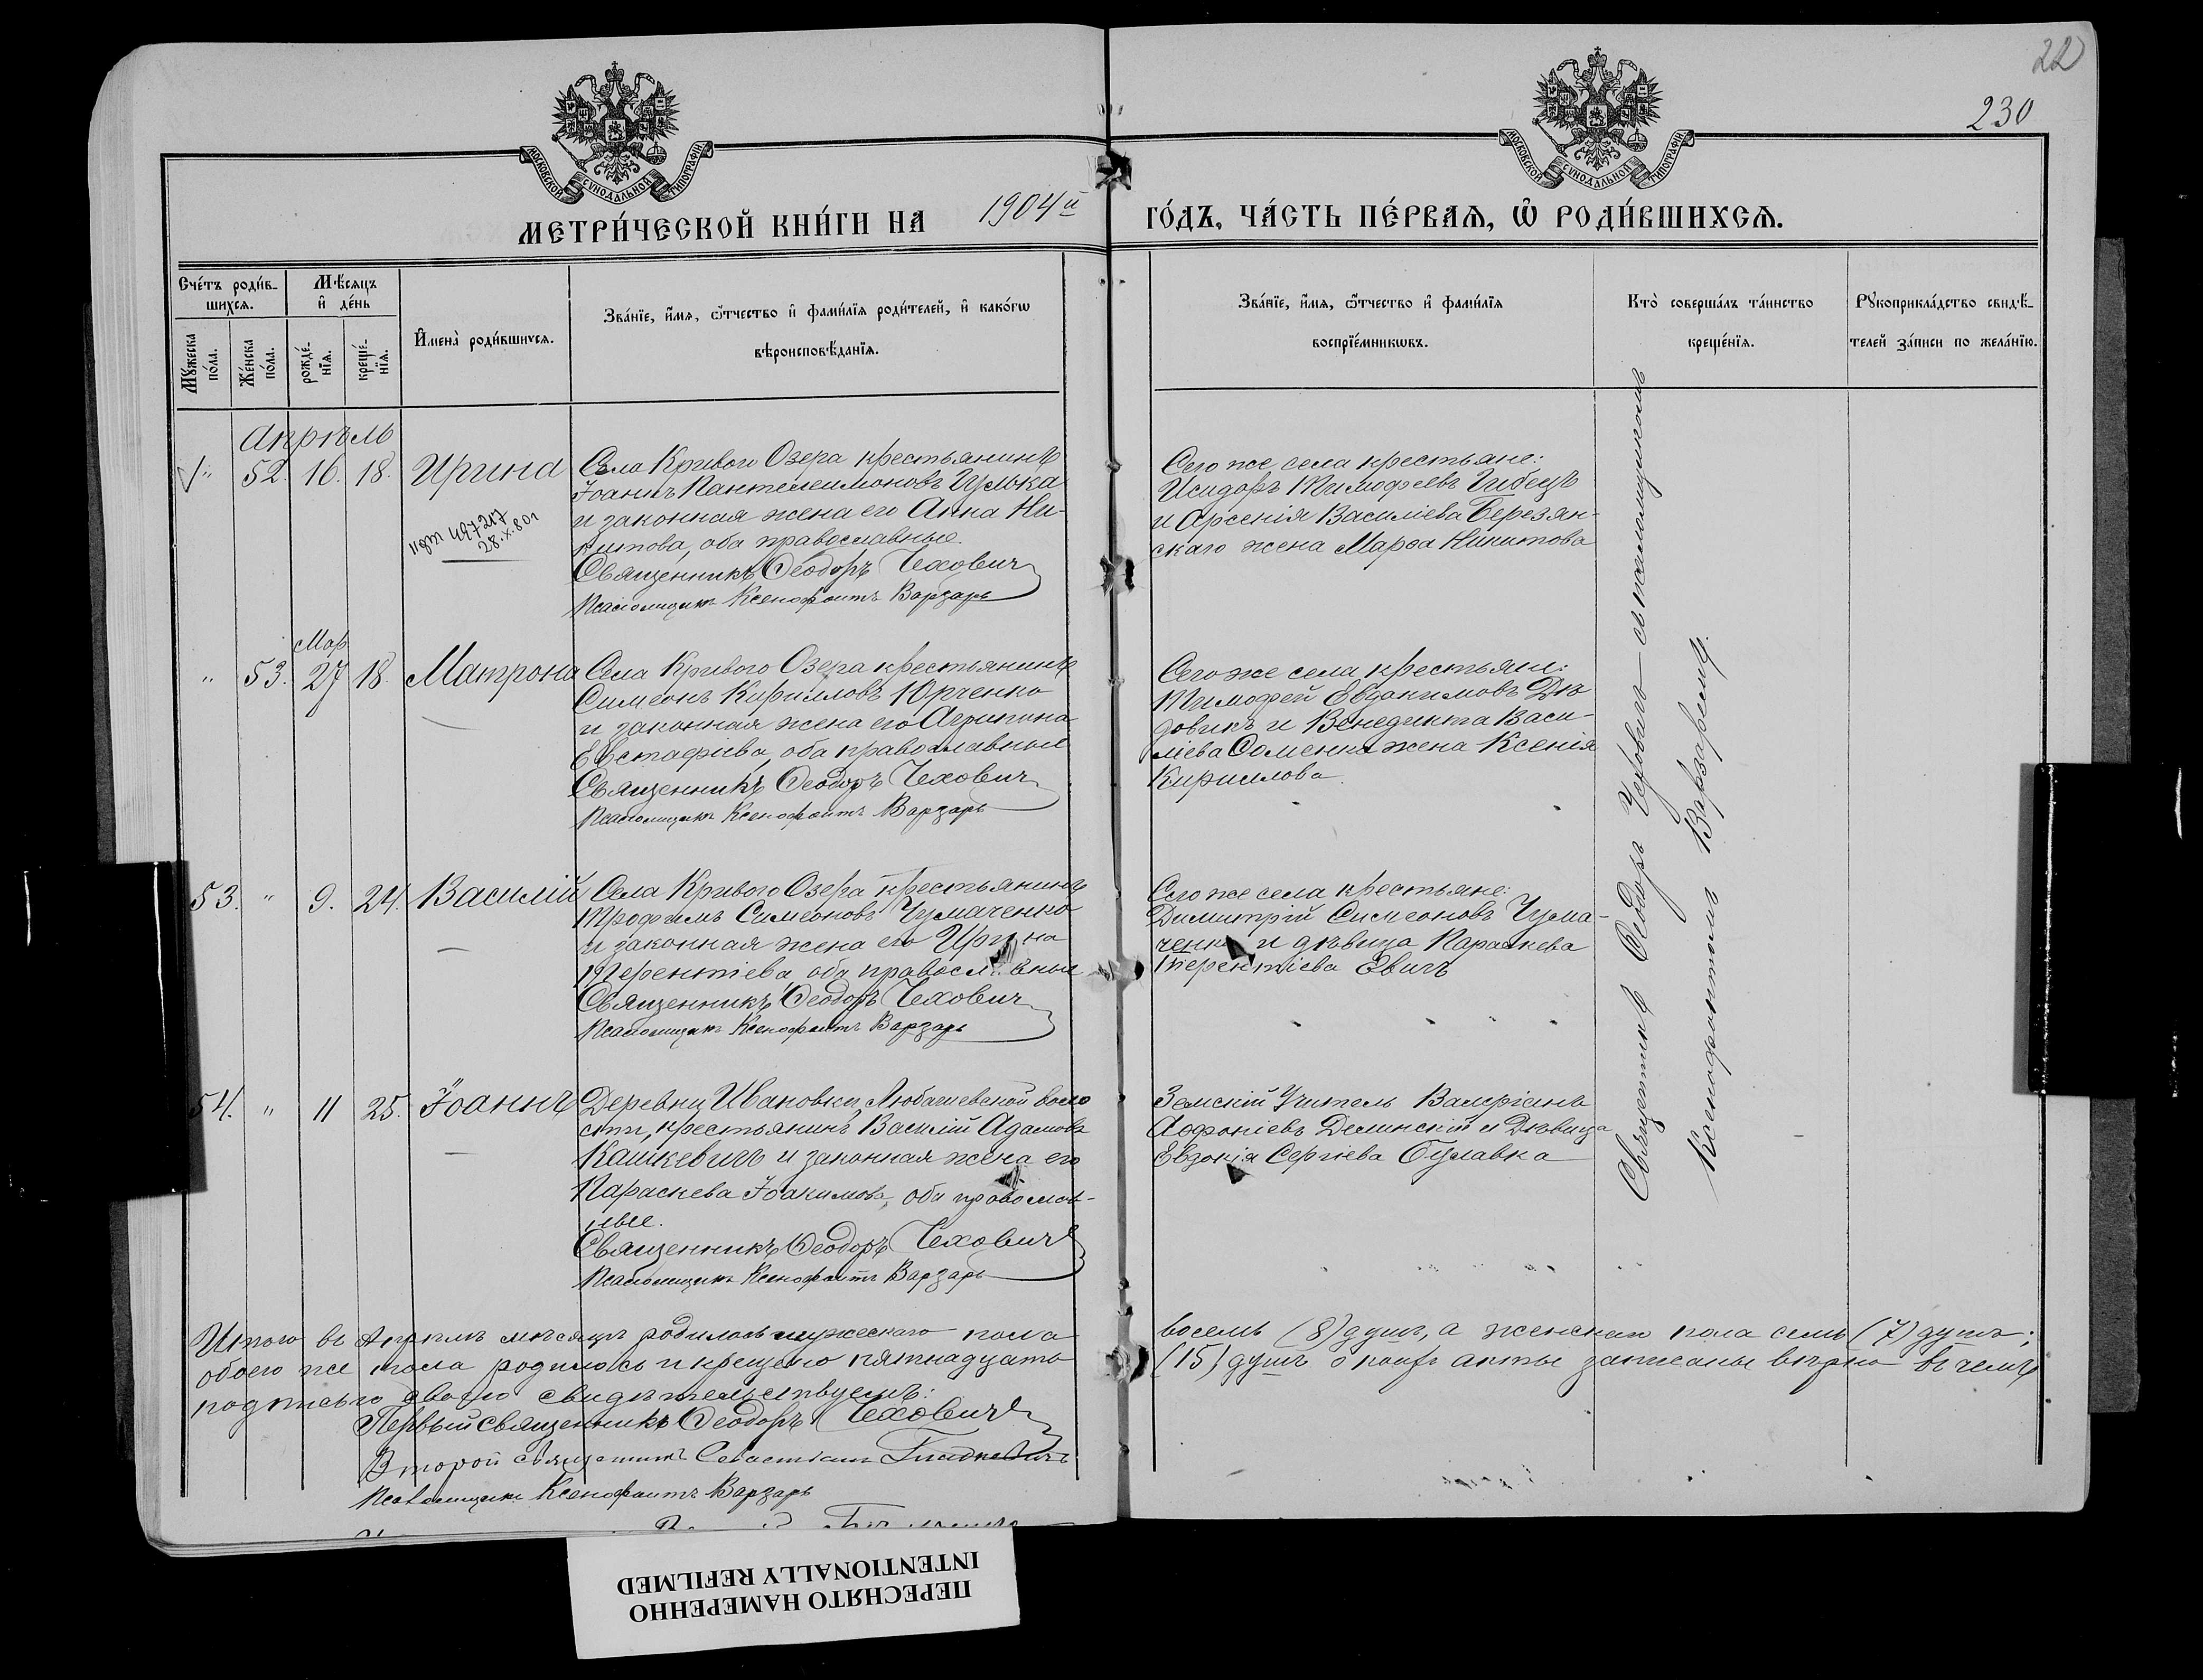 22
230
МОСКОВСКОЙ СѴНОДАЛЬНОЙ ТИПОГРАФІИ
МОСКОВСКОЙ СѴНОДАЛЬНОЙ ТИПОГРАФІИ
МЕТРИ́ЧЕСКОЙ КНИ́ГИ НА 1904й ГО́ДЪ, ЧА́СТЬ ПЕ́РВАѦ, Ѡ҆ РОДИ́ВШИХСѦ.
Сче́тъ роди́в-
шихсѧ.
Мꙋ́жеска
по́ла.
Же́нска
по́ла.
Мѣ́сѧцъ
и҆ де́нь
рожде́-
нїѧ.
креще́-
нїѧ.
И҆мена̀ роди́вшихсѧ.
Зва́нїе, и҆́мѧ, ѻ҆́тчество и҆ фами́лїѧ роди́телей, и҆ како́гѡ
вѣроисповѣ́данїѧ.
Зва́нїе, и҆́мѧ, ѻ҆́тчество и҆ фами́лїѧ
воспрїе́мникѡвъ.
Кто̀ соверша́лъ та́инство
креще́нїѧ.
Рꙋкоприкла́дство свидѣ́-
телей за́писи по жела́нїю.
Апрѣль
" 52. 16. 18. Ирина
Села Кривого Озера крестьянинъ
Іоаннъ Пантелеимоновъ Гулька
и законная жена его Анна Ни-
китова, оба православные.
Священникъ Ѳеодоръ Чеховичъ
Псаломщикъ Ксенофонтъ Варзарь
497217
28.X.80г
Сего же села крестьяне:
Исидоръ Тимофеевъ Гибецъ
и Арсенія Василіева Березян-
скаго жена Марѳа Никитова
Мар.
" 53. 27 18. Матрона
Села Кривого Озера крестьянинъ
Симеонъ Кирилловъ Юрченко
и законная жена его Агрипина
Евстафіева, оба православные
Священникъ Ѳеодоръ Чеховичъ
Псаломщикъ Ксенофонтъ Варзарь
Сего же села крестьяне:
Тимофей Евдокимовъ Дѣ-
довикъ и Венедикта Васи-
ліева Соменка жена Ксенія
Кириллова
53. " 9. 24. Василій
Села Кривого Озера крестьянинъ
Трофимъ Симеоновъ Чумаченко
и законная жена его Ирина
Терентіева, оба православные
Священникъ Ѳеодоръ Чеховичъ
Псаломщикъ Ксенофонтъ Варзарь
Сего же села крестьяне:
Димитрій Симеоновъ Чума-
ченко и дѣвица Параскева
Терентіева Евичъ
54. " 11 25. Іоаннъ
Деревни Ивановки, Любашевской воло
сти, крестьянинъ Василій Адамовъ
Кашкевичъ и законная жена его
Параскева Іоакимова, оба православ-
ные.
Священникъ Ѳеодоръ Чеховичъ
Псаломщикъ Ксенофонтъ Варзарь
Земскій Учитель Валеріанъ
Аѳфоніевъ Делинскій и Дѣвица
Евдокія Сергіева Булавка
Священникъ Ѳеодоръ Чеховичъ съ псаломщикомъ
Ксенофонтомъ Варзаремъ.
Итого въ Апрѣлѣ мѣсяцѣ родилось мужескаго пола восемь (8) душъ, а женскаго пола семь (7) душъ;
обоего же пола родилось и крещено пятнадцать (15) душъ о коихъ акты записаны вѣрно въ чемъ
подписью своею свидѣтельствуемъ:
Первый священникъ Ѳеодоръ Чеховичъ
Второй священникъ Севастіанъ
Псаломщикъ Ксенофонтъ Варзарь
ПЕРЕСНЯТО НАМЕРЕННО
INTENTIONALLY REFILMED